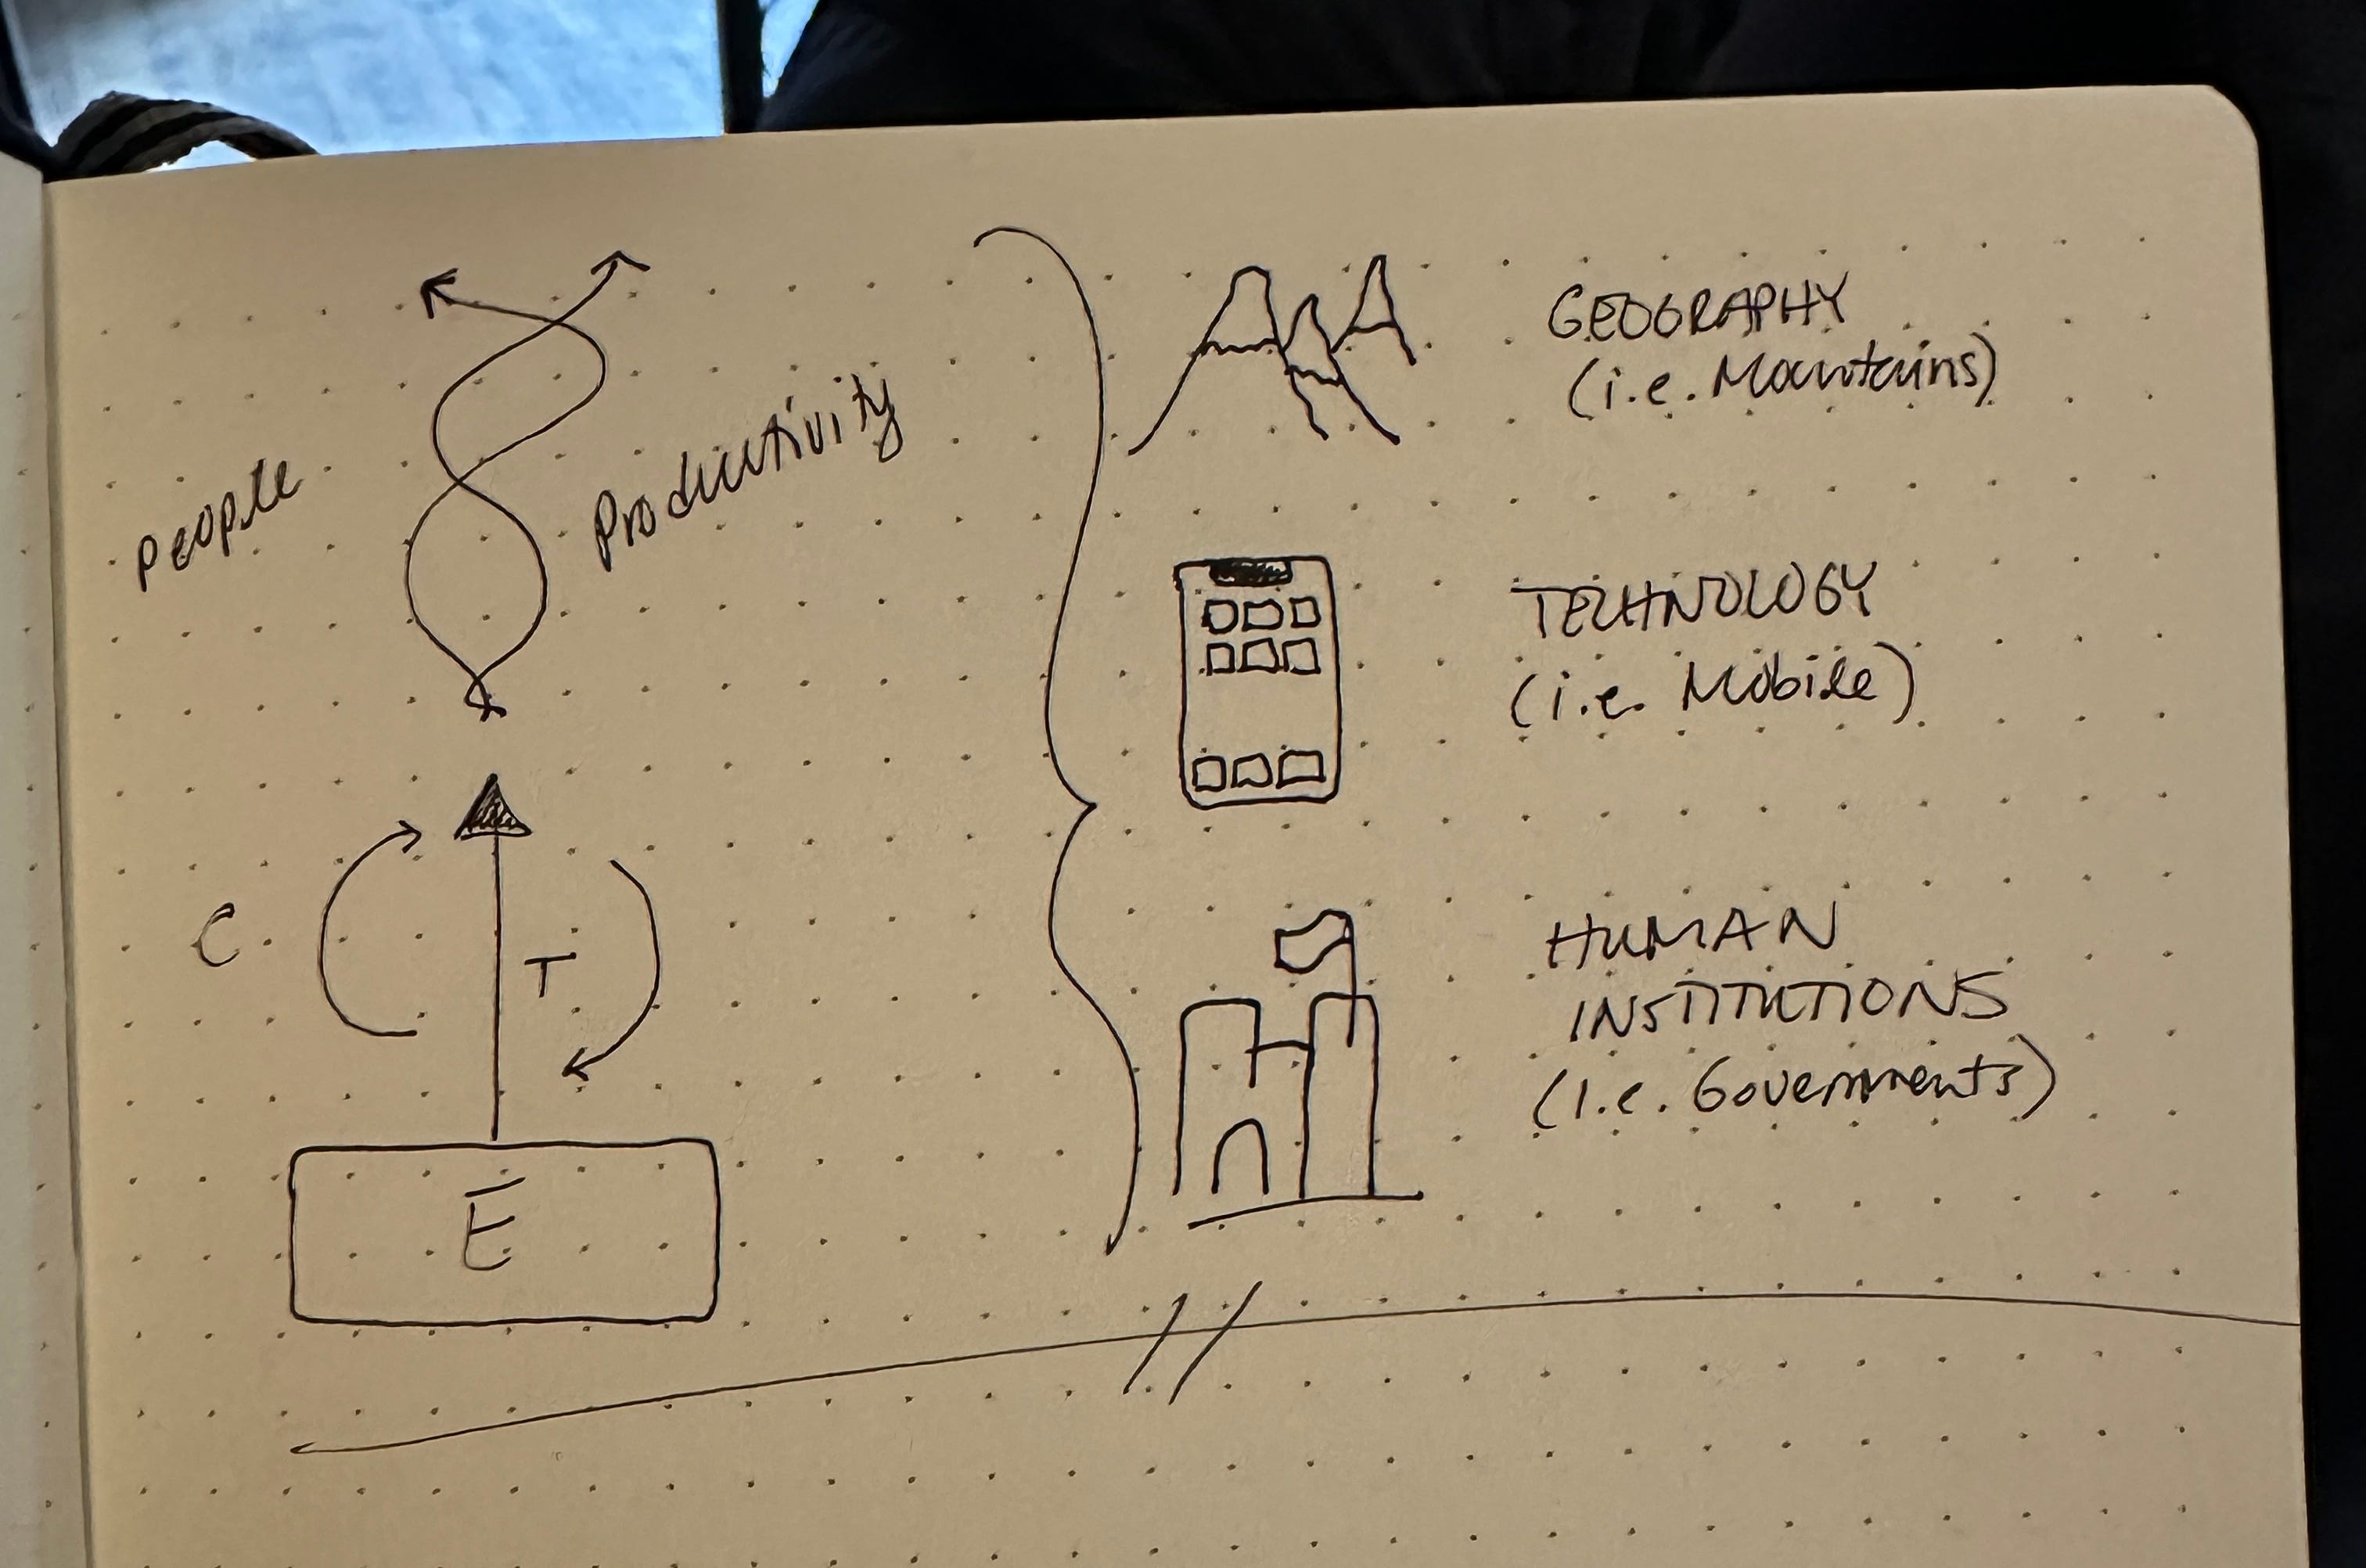 People
Productivity
C
T
E
GEOGRAPHY
(i.e. Mountains)
TECHNOLOGY
(i.e. Mobile)
HUMAN
INSTITUTIONS
(i.e. Governments)